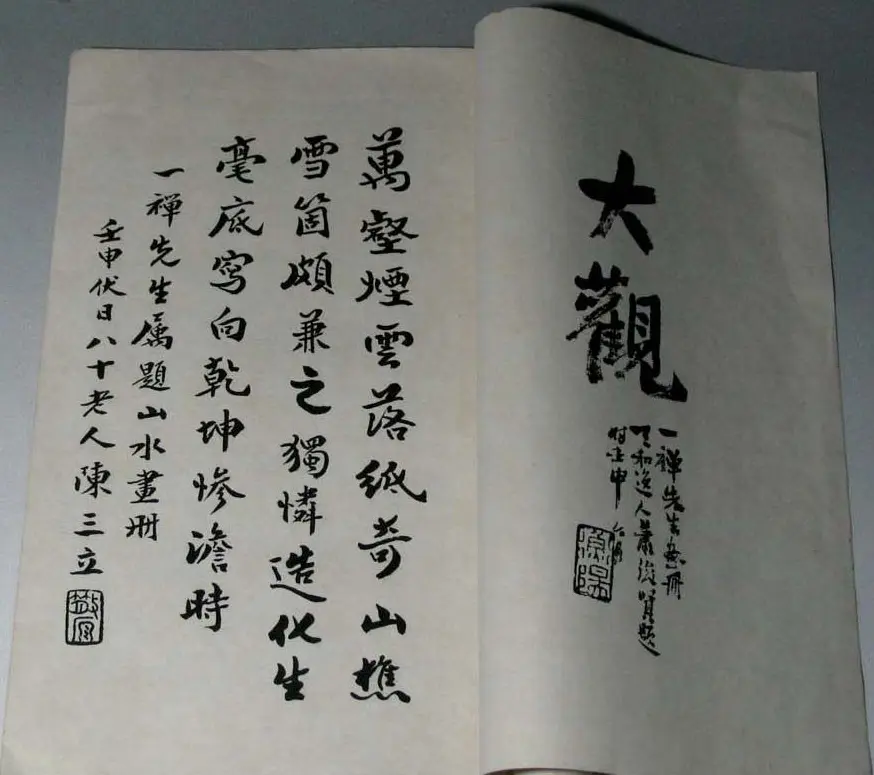 大觀
一禪先生畫冊
天和逸人蕭俊賢題
時壬申
萬壑煙雲落紙奇山樵
雪箇頗兼之獨憐造化生
毫底寫向乾坤慘澹時
一禪先生属題山水畫册
壬申伏日八十老人陳三立